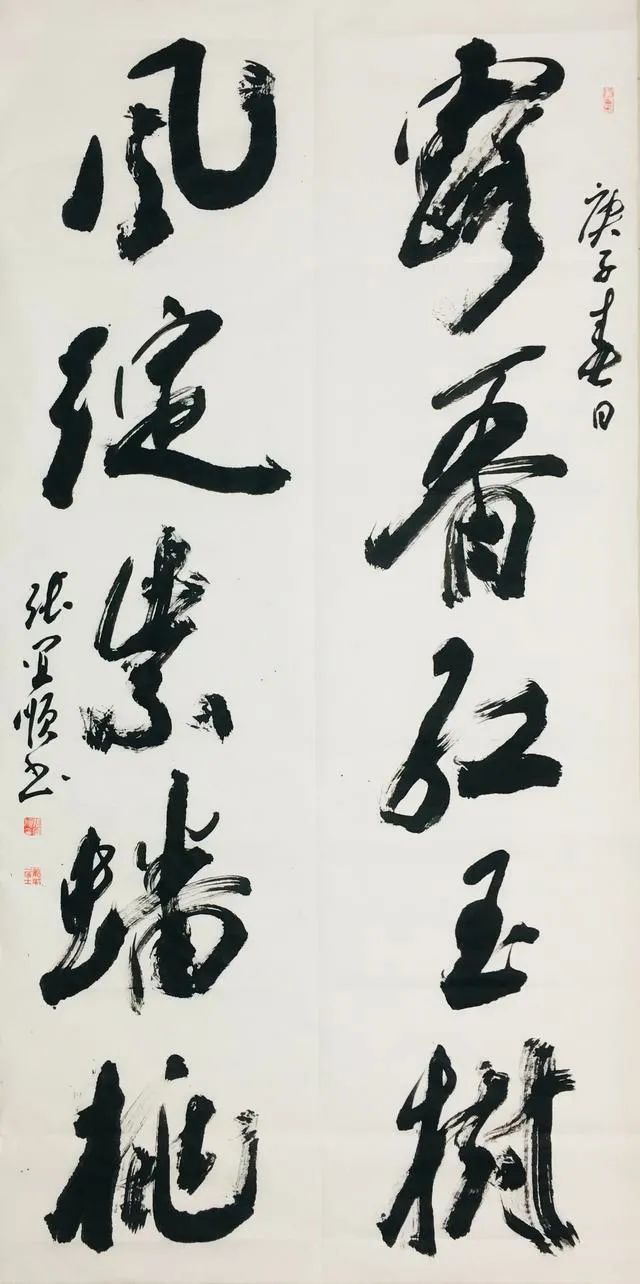 庚子春日
露香红玉树
风绽紫蟠桃
张宜顺书